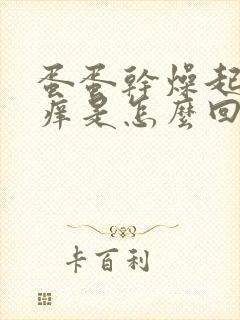 蛋蛋幹燥起
癢是怎麼回
卡百利